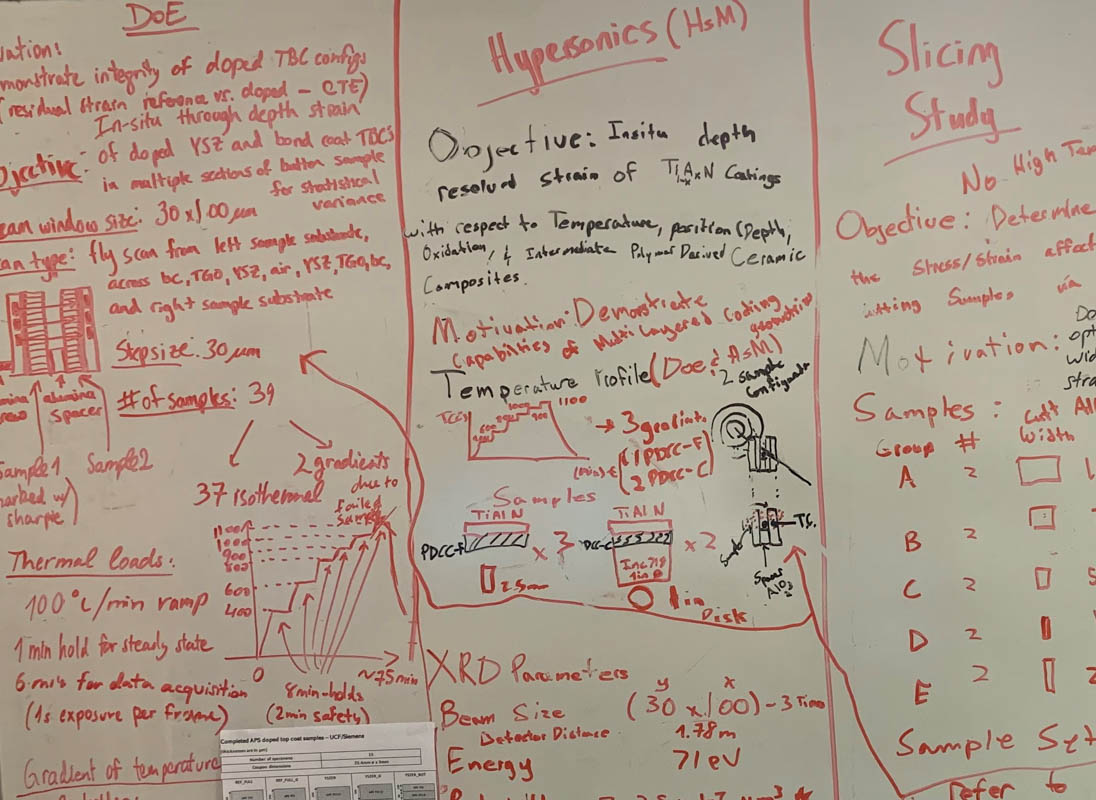 DoE
vation:
monstrate integrity of doped TBC configs
(residual strain reference vs. doped - CTE)
In-situ through depth strain
Objective: of doped YSZ and bond coat TBC's
in multiple sections of button sample
for statistical
variance
eam window size: 30 x 100 μm
can type: fly scan from left sample substrate,
across bc, TGO, YSZ, air, YSZ, TGO, bc,
and right sample substrate
Stepsize: 30 μm
# of samples: 39
mina
screw
alumina
spacer
Sample1
Sample2
marked w/
sharpie
37 isothermal
2 gradients
due to
failed
sample
Thermal loads:
100°c/min ramp
1 min hold for steady state
6 min's for data acquisition
(1s exposure per frame)
1100
1000
900
800
600
400
0
~75min
8min-holds
(2min safety)
Gradient of temperature
Completed APS doped top coat samples – UCF/Siemens
Number of specimens
15
Coupon dimensions
Hypersonics (HsM)
Objective: Insitu depth
resolved strain of Ti1-xAlxN Coatings
with respect to Temperature, position (Depth,
Oxidation, & Intermediate Polymer Derived Ceramic
Composites.
Motivation: Demonstrate
Capabilities of Multi Layered Coating
geometries
Temperature Profile (Doe & HsM)
2 sample
configuration
TCC's
1100
→ 3 gradient
(min)
1 PDCC-F
2 PDCC-C
Samples
TiAlN
PDCC-F
x 3
2.5mm
TiAlN
PDCC-C
Inc 718
1in ø
x 2
1in
Disk
TC.
Al2O3
XRD Parameters
y x
Beam Size (30 x 100) - 3 Times
Detector Distance 1.78m
Energy 71 eV
Slicing
Study
No High Tem
Objective: Determine
the stress/strain affect
cutting Samples via
Motivation:
Do
opt
wid
stra
Samples:
Group # Cut Width
A 2
B 2
C 2
D 2
E 2
Sample Set
refer to